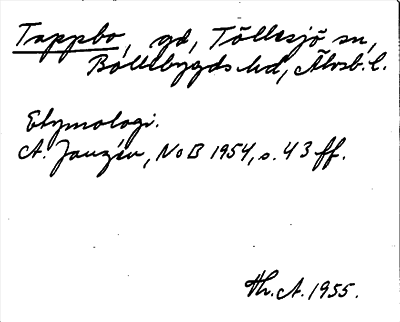 Tappbo, gd, Töllesjö sn,
Bollebygds hd, Älvsb. l.
Etymologi.
A. Janzén, NoB 1954, s. 43 ff.
Th. A. 1955.